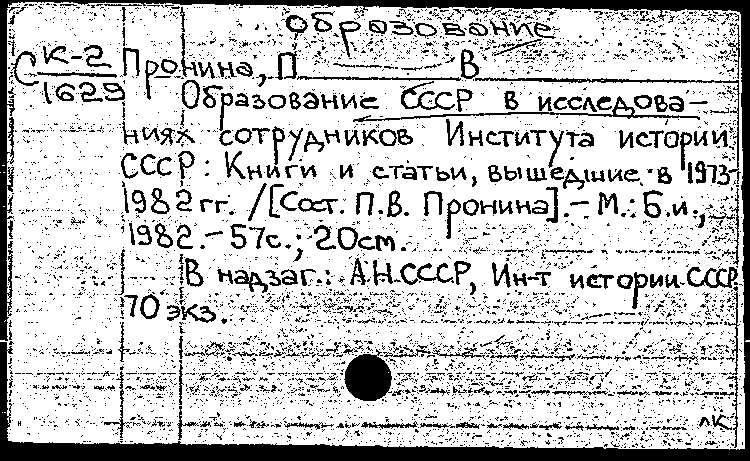 образование
С К-2
1629
Пронина, П В
Образование СССР в исследова-
ниях сотрудников Института истории
СССР: Книги и статьи, вышедшие в 1973-
1982 гг. /[Сост. П.В. Пронина]. – М.: Б.и.,
1982. – 57с.; 20см.
В надзаг.: АН СССР, Ин-т истории СССР
70 экз.
лк